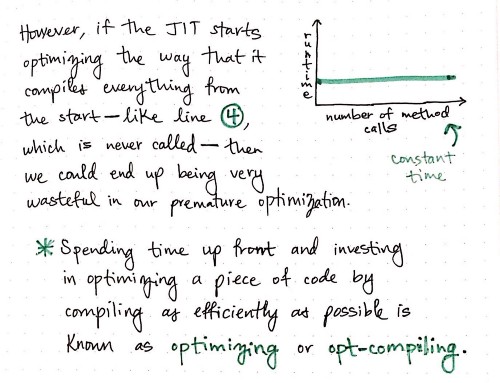 However, if the JIT starts
optimizing the way that it
compiles everything from
the start—like line 4,
which is never called—then
we could end up being very
wasteful in our premature optimization.
runtime
number of method
calls
constant
time
* Spending time up front and investing
in optimizing a piece of code by
compiling as efficiently as possible is
known as optimizing or opt-compiling.